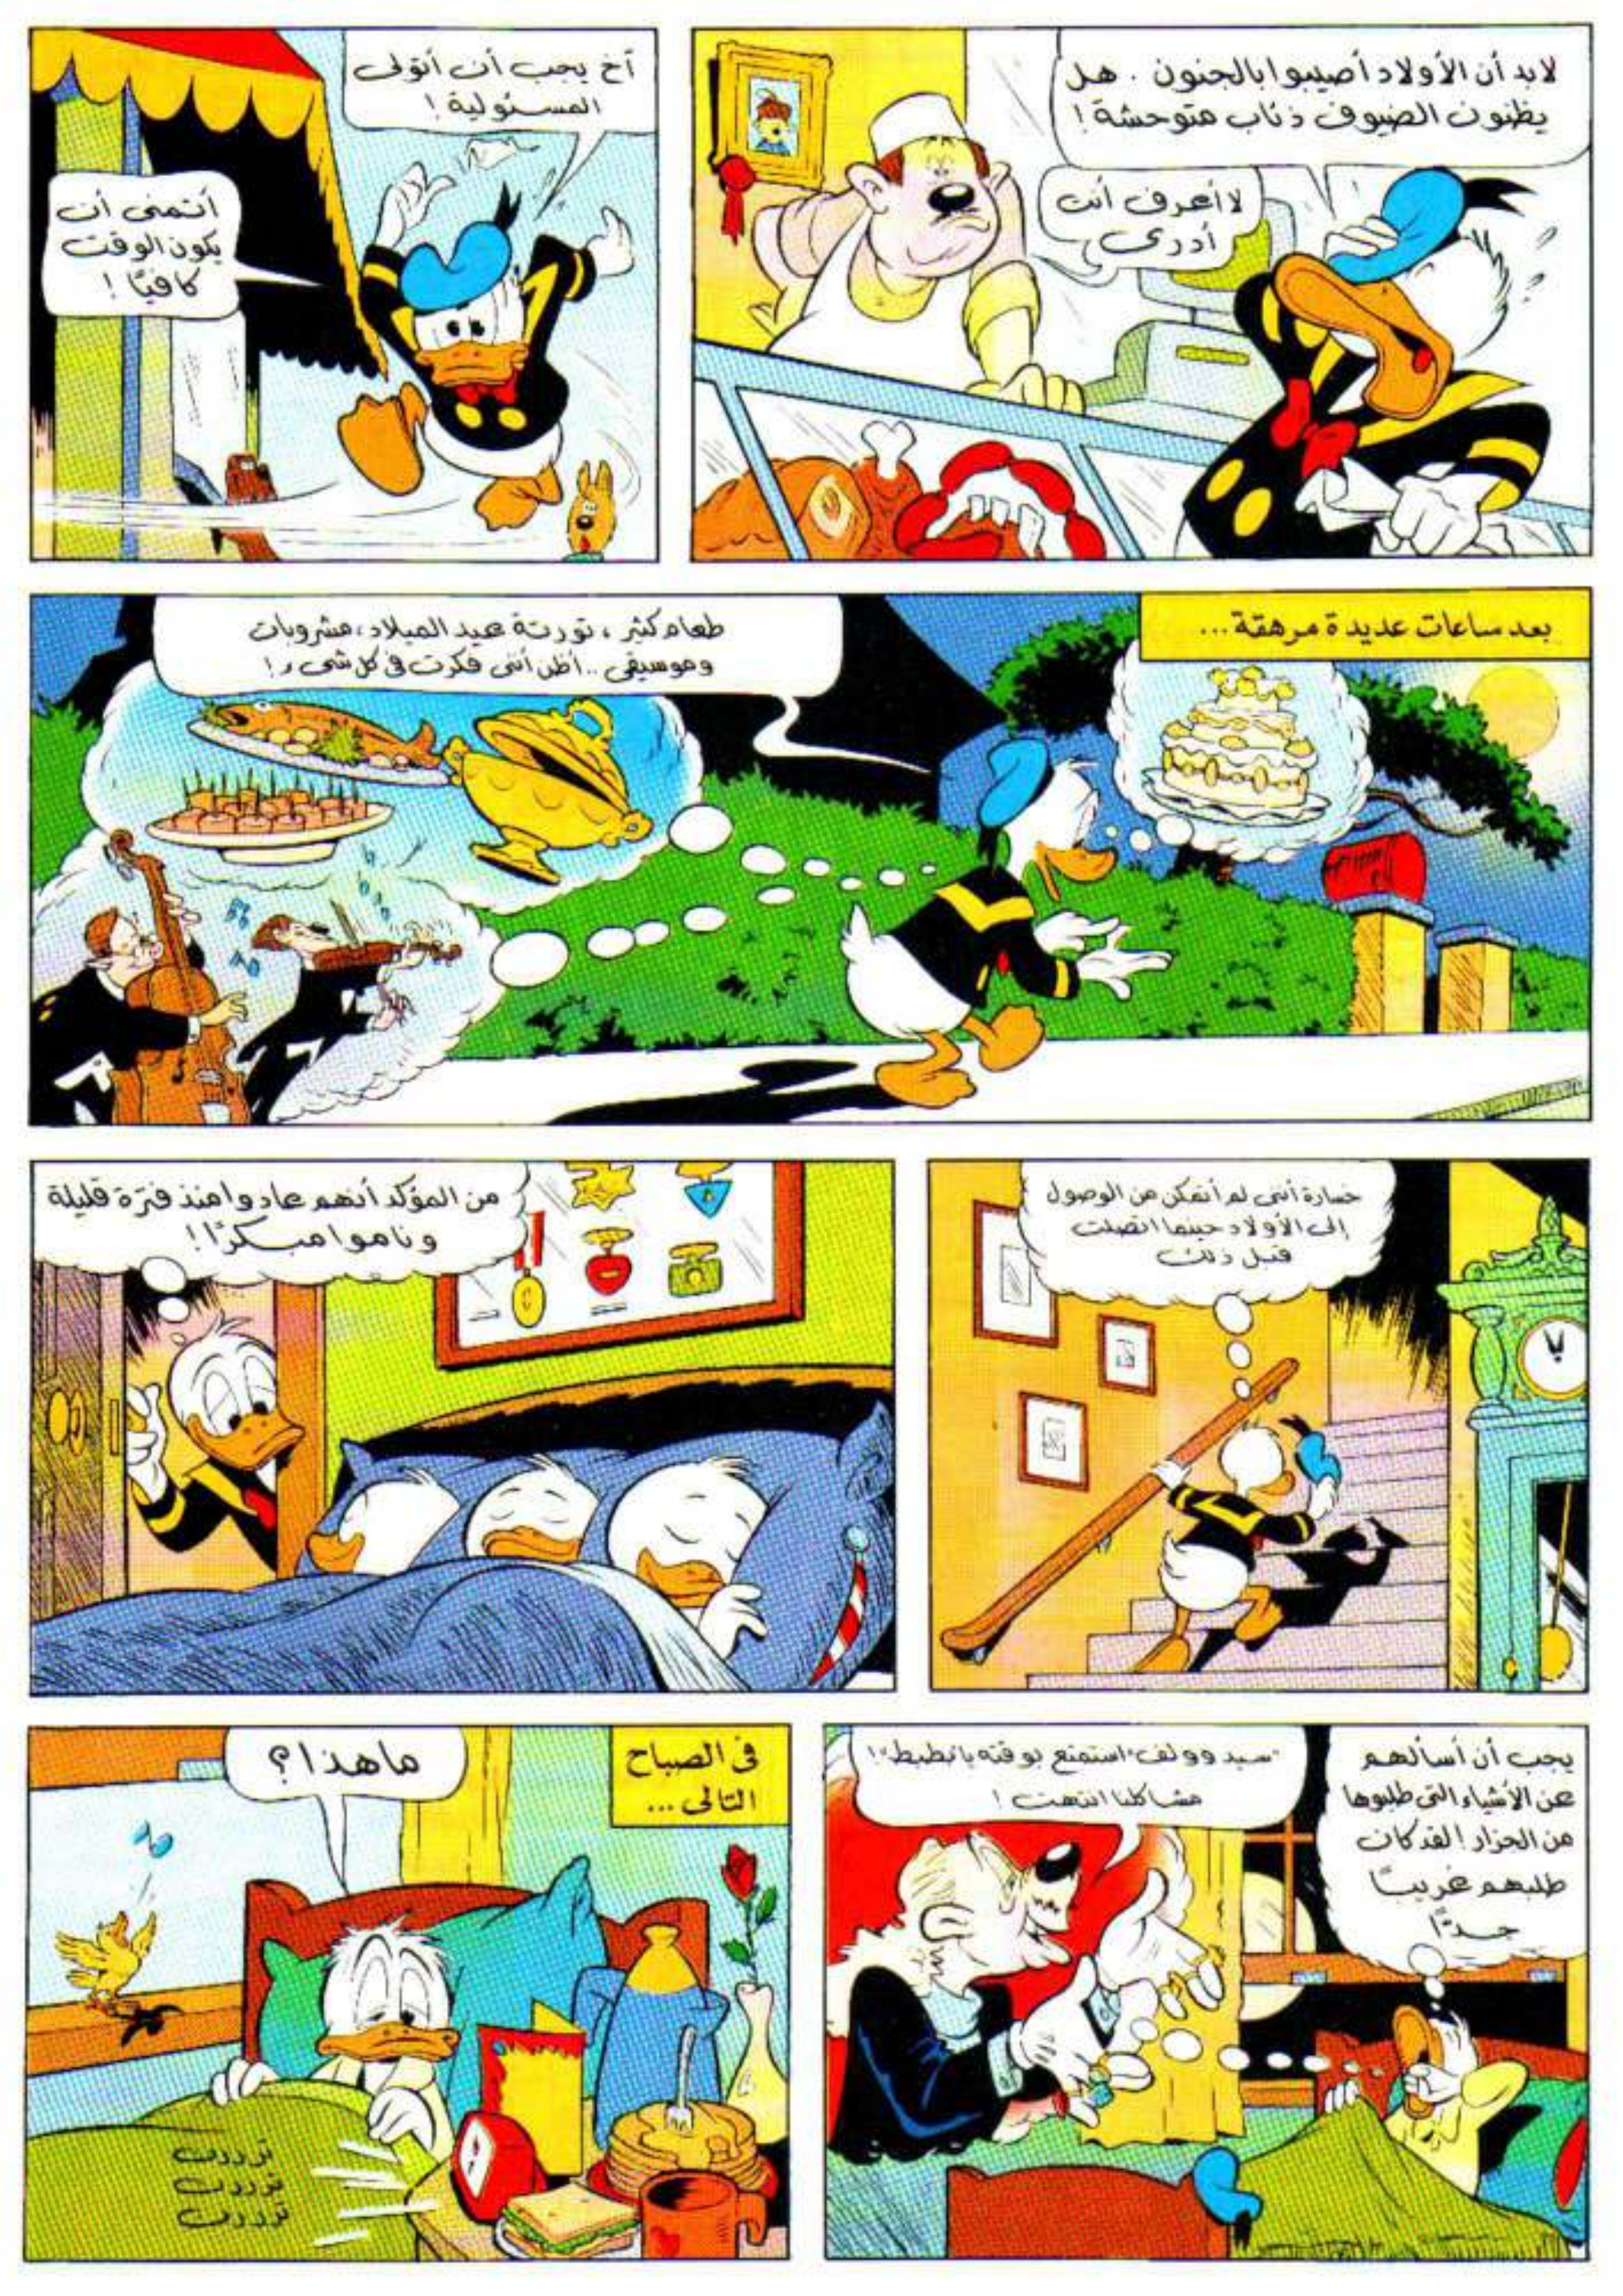 لابد أن الأولاد أصيبوا بالجنون . هل
يظنون الضيوف ذئاب متوحشة !
لا أعرف أنت
أدرى
آخ يجب أن أتولى
المسئولية !
أتمنى أن
يكون الوقت
كافيًا !
بعد ساعات عديدة مرهقة...
طعام كثير ، تورتة عيد الميلاد ، مشروبات
وموسيقى .. أظن أننى فكرت فى كل شىء !
خسارة أننى لم أتمكن من الوصول
إلى الأولاد حينما اتصلت
قبل ذلك
من المؤكد أنهم عادوا منذ فترة قليلة
وناموا مبكرًا !
يجب أن أسألهم
عن الأشياء التى طلبوها
من الجزار ! لقد كان
طلبهم غريبًا
جدًا
"سيد وولف" استمتع بوقته يا "بطبط" !
مشاكلنا انتهت !
فى الصباح
التالى ...
ما هذا ؟
تررررن
تررررن
تررررن